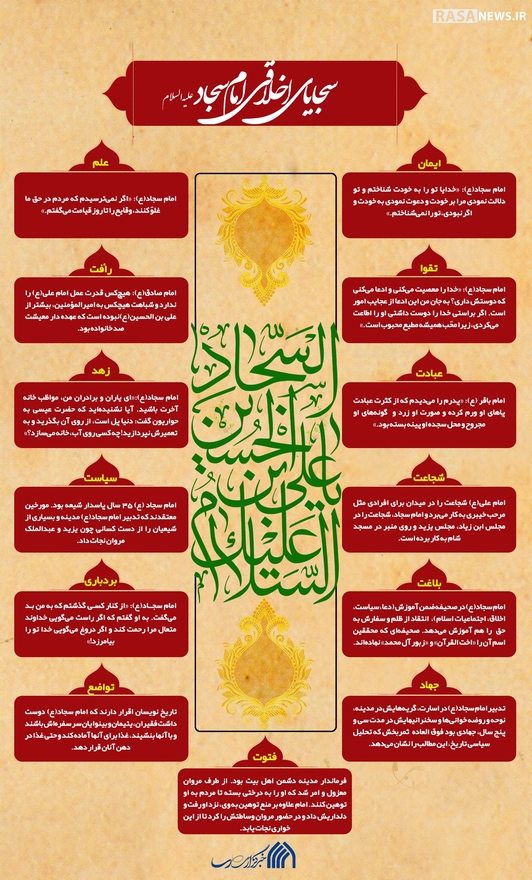 RASANEWS.IR
سجایای اخلاقی امام سجاد علیه السلام
ایمان
امام سجاد(ع): «خدایا تو را به خودت شناختم و تو
دلالت نمودی مرا بر خودت و دعوت نمودی به خودت و
اگر نبودی، تو را نمی‌شناختم.»
علم
امام سجاد(ع): «اگر نمی‌ترسیدم که مردم در حق ما
غلوّ کنند، وقایع را تا روز قیامت می‌گفتم.»
تقوا
امام سجاد(ع): «خدا را معصیت می‌کنی و ادعا می‌کنی
که دوستش داری؟ به جان من این ادعا از عجایب امور
است. اگر براستی خدا را دوست داشتی او را اطاعت
می‌کردی، زیرا محّب همیشه مطیع محبوب است.»
رأفت
امام صادق(ع): هیچ‌کس قدرت عمل امام علی(ع) را
ندارد و شباهت هیچکس به امیرالمؤمنین، بیشتر از
علی بن الحسین(ع) نبوده است که عهده دار معیشت
صد خانواده بود.
عبادت
امام باقر (ع): «پدرم را می‌دیدم که از کثرت عبادت
پاهای او ورم کرده و صورت او زرد و گونه‌های او
مجروح و محل سجده او پینه بسته بود.»
زهد
امام سجاد(ع): «ای یاران و برادران من، مواظب خانه
آخرت باشید. آیا نشنیده‌اید که حضرت عیسی به
حواریون گفت: دنیا پل است، از روی آن بگذرید و به
تعمیرش نپردازید! چه کسی روی آب، خانه می‌سازد؟»
شجاعت
امام علی(ع) شجاعت را در میدان برای افرادی مثل
مرحب خیبری به کار می‌برد و امام سجاد، شجاعت را در
مجلس ابن زیاد، مجلس یزید و روی منبر در مسجد
شام به کار برده است.
سیاست
امام سجاد (ع) ۳۵ سال پاسدار شیعه بود. مورخین
معتقدند که تدبیر امام سجاد(ع) مدینه و بسیاری از
شیعیان را از دست کسانی چون یزید و عبدالملک
مروان نجات داد.
بلاغت
امام سجاد(ع) در صحیفه ضمن آموزش (دعا، سیاست،
اخلاق، اجتماعیات اسلام)، انتقاد از ظلم و سفارش به
حق را هم آموزش می‌دهد. صحیفه‌ای که محققین
اسم آن را «اخت القرآن» و «زبور آل محمد» نهاده‌اند.
بردباری
امام سجاد(ع): «از کنار کسی گذشتم که به من بد
می‌گفت. به او گفتم که اگر راست می‌گویی خداوند
متعال مرا رحمت کند و اگر دروغ می‌گویی خدا تو را
بیامرزد!»
جهاد
تدبیر امام سجاد(ع) در اسارت، گریه‌هایش در مدینه،
نوحه و روضه خوانی‌ها و سخنرانیهایش در مدت سی و
پنج سال، جهادی بود فوق العاده ثمربخش که تحلیل
سیاسی تاریخ، این مطالب را نشان می‌دهد.
تواضع
تاریخ نویسان اقرار دارند که امام سجاد(ع) دوست
داشت فقیران، یتیمان و بینوایان سر سفره‌اش باشند
و با آنها بنشیند، غذا برای آنها آماده کند و حتی غذا در
دهن آنان قرار دهد.
السلام علیک یا علی بن الحسین السجاد
فتوت
فرماندار مدینه دشمن اهل بیت بود. از طرف مروان
معزول و امر شد که او را به درختی بسته تا مردم به او
توهین کنند. امام علاوه بر منع توهین به وی، نزد او رفت و
دلداریش داد و در حضور مروان وساطتش را کرد تا از این
خواری نجات یابد.
خبرگزاری رسا